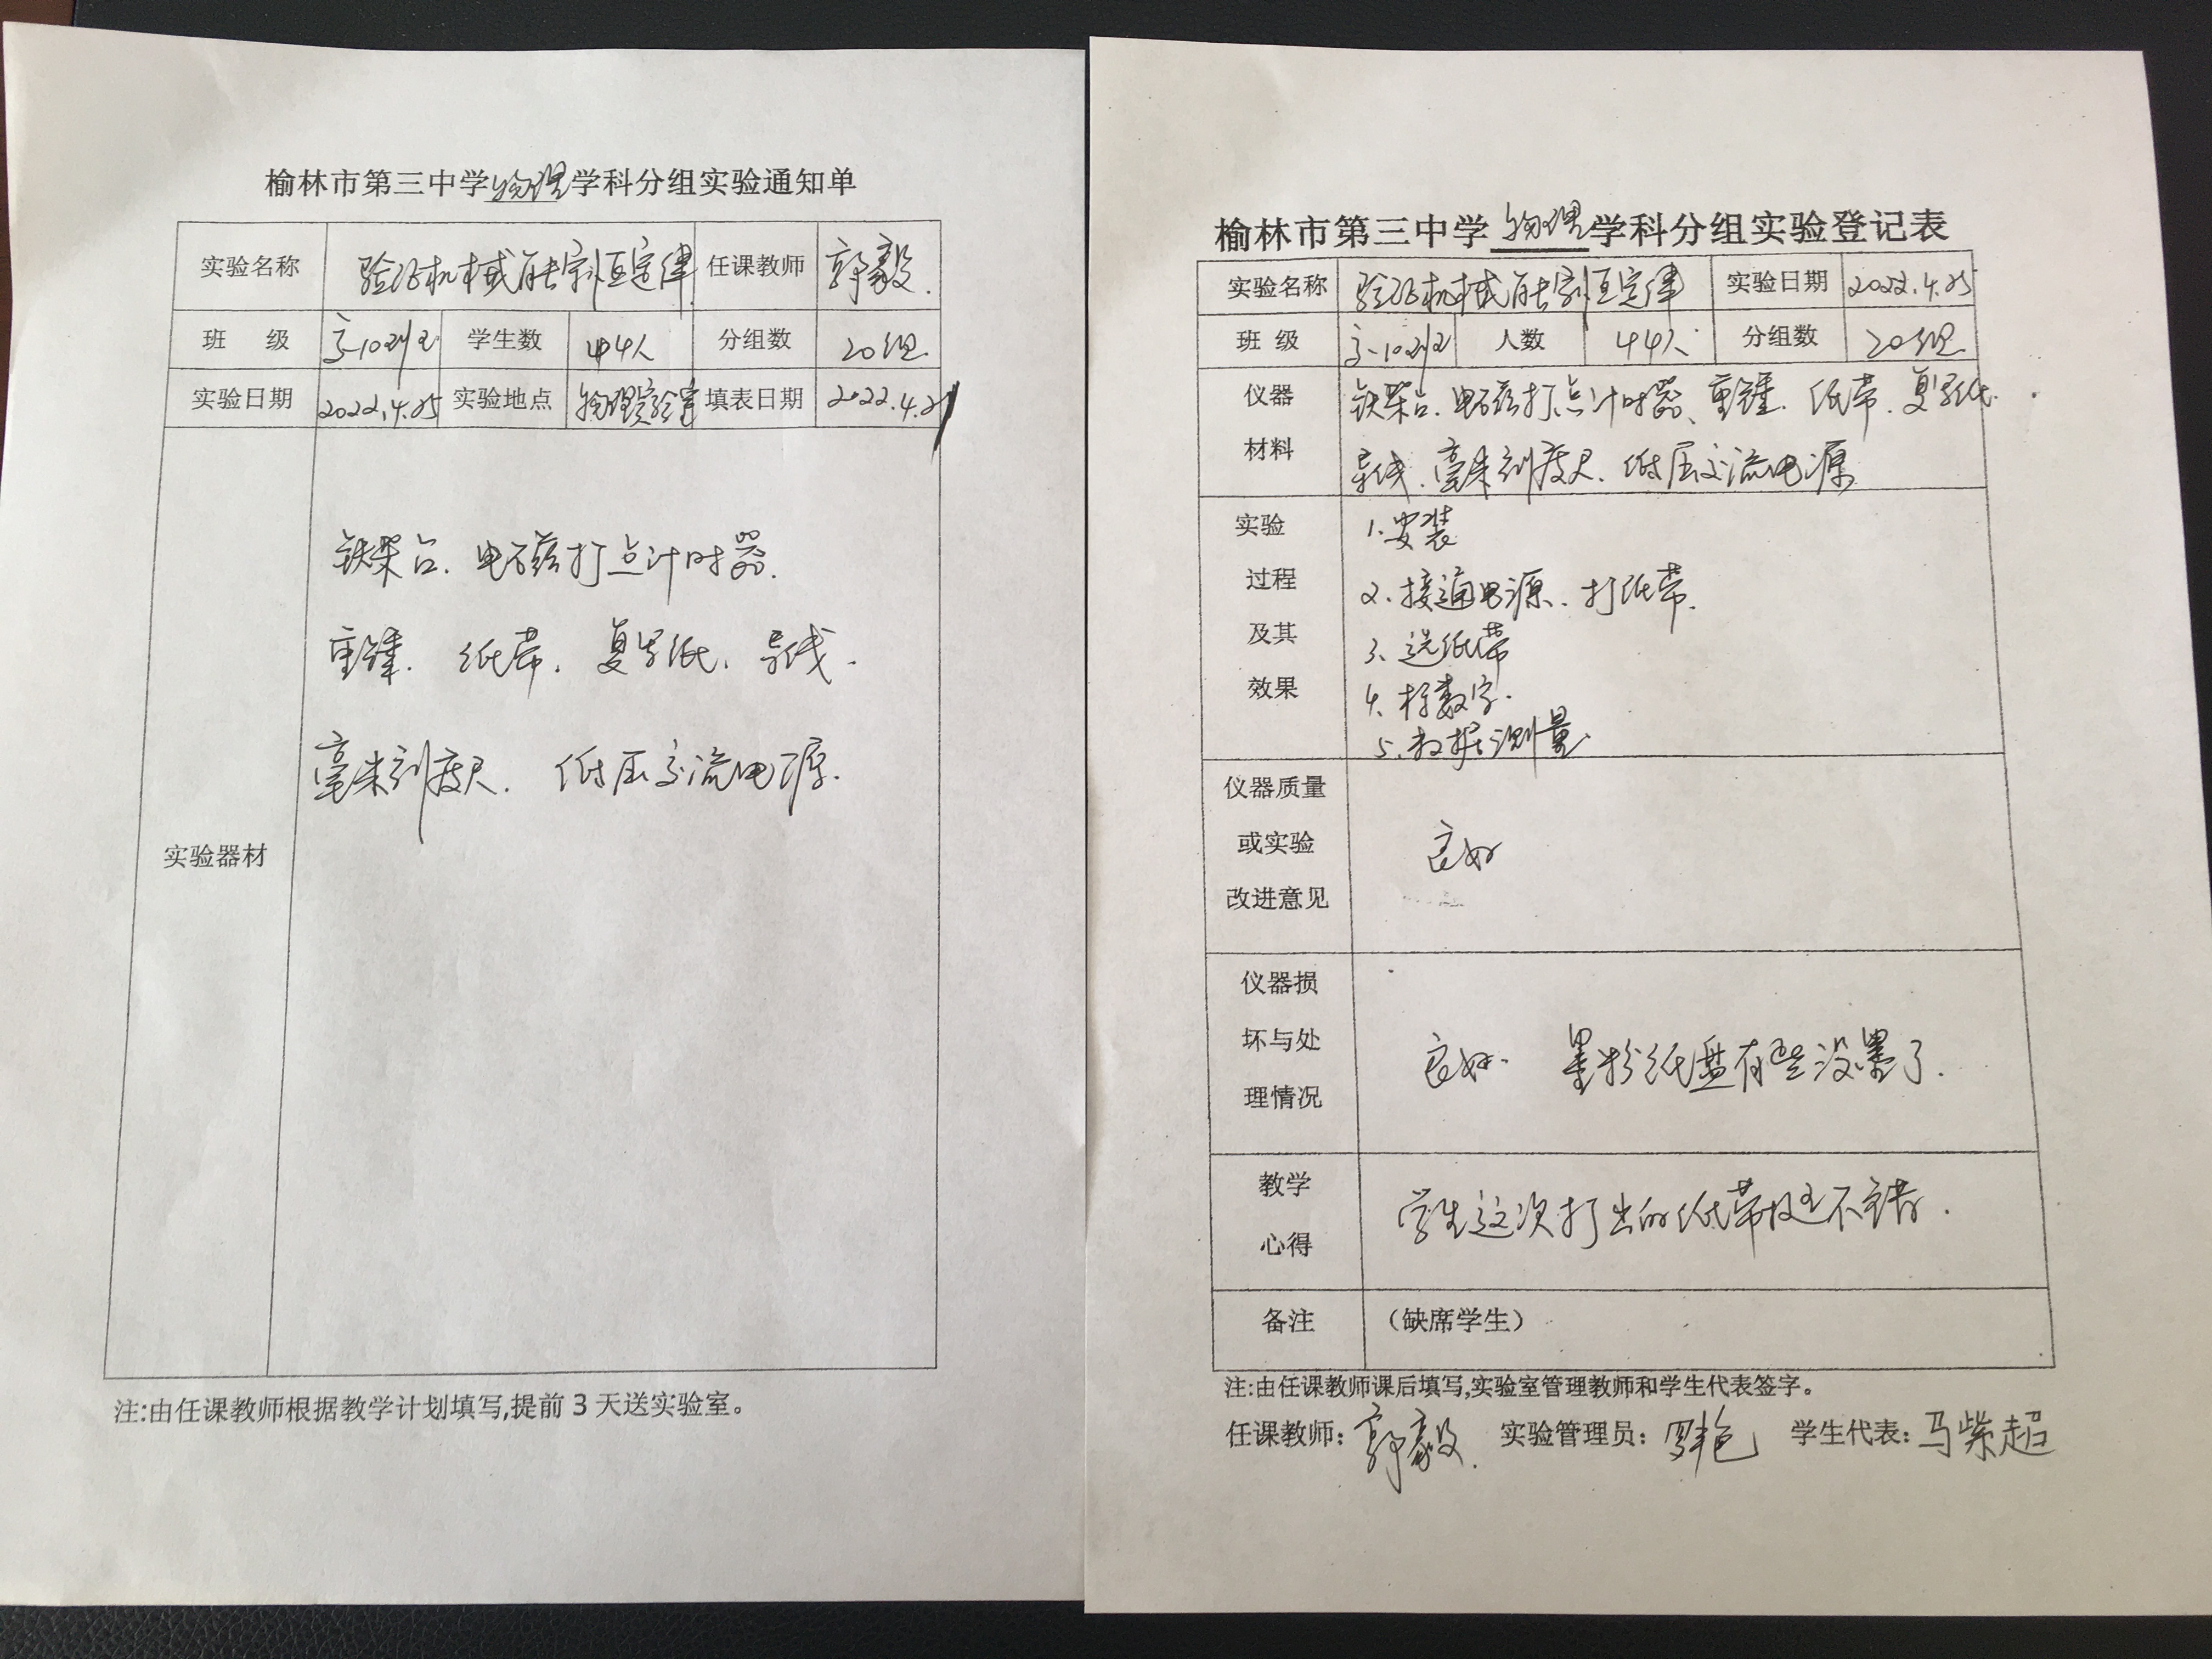 榆林市第三中学物理学科分组实验通知单
实验名称 验证机械能守恒定律 任课教师 郭毅.
班 级 高一10班 学生数 44人 分组数 20组
实验日期 2022.4.25 实验地点 物理实验室 填表日期 2022.4.21
实验器材
铁架台、电磁打点计时器.
重锤. 纸带. 复写纸. 导线.
毫米刻度尺. 低压交流电源.
注:由任课教师根据教学计划填写,提前 3 天送实验室。
榆林市第三中学物理学科分组实验登记表
实验名称 验证机械能守恒定律 实验日期 2022.4.25
班 级 高一10班 人数 44人 分组数 20组
仪器材料
铁架台、电磁打点计时器、重锤. 纸带. 复写纸.
导线. 毫米刻度尺. 低压交流电源
实验过程及其效果
1.安装
2.接通电源、打纸带.
3、选纸带
4. 标数字.
5.数据测量
仪器质量或实验改进意见
良好
仪器损坏与处理情况
良好. 墨粉纸盘有些没墨了.
教学心得
学生这次打出的纸带还不错.
备注 （缺席学生）
注:由任课教师课后填写,实验室管理教师和学生代表签字。
任课教师: 郭毅. 实验管理员: 罗艳 学生代表: 马柴超